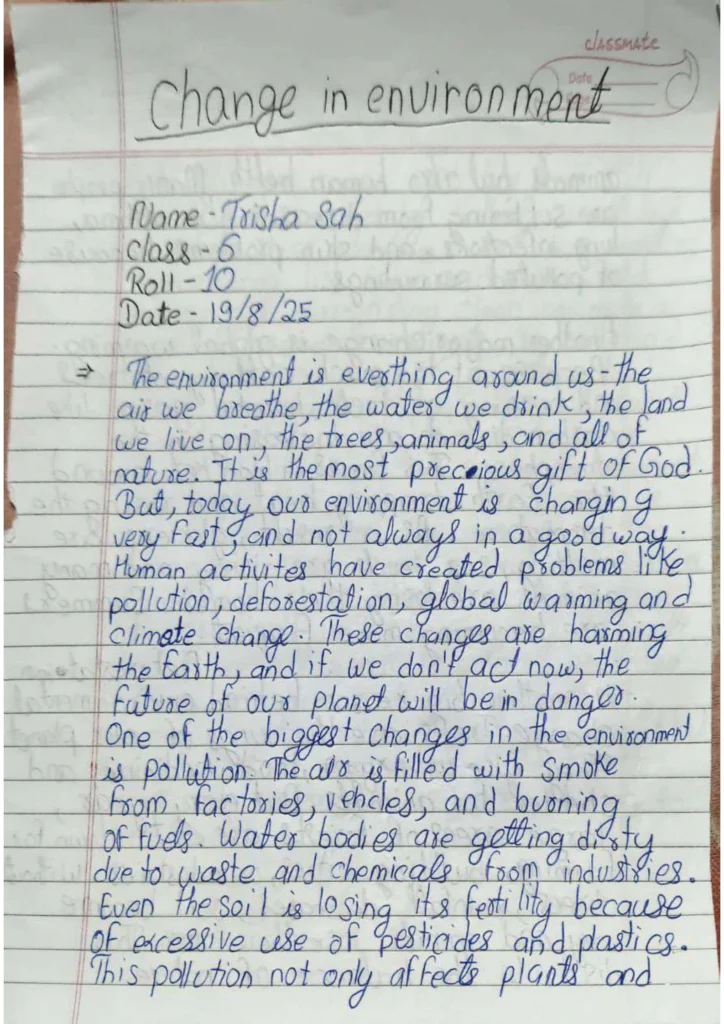 classmate
Date
Change in environment
Name - Trisha Sah
Class - 6
Roll - 10
Date - 19/8/25
⇒ The environment is everthing around us - the
air we breathe, the water we drink, the land
we live on, the trees, animals, and all of
nature. It is the most precious gift of God.
But, today our environment is changing
very fast, and not always in a good way.
Human activites have created problems like
pollution, deforestation, global warming and
climate change. These changes are harming
the Earth, and if we don't act now, the
future of our planet will be in danger.
One of the biggest changes in the environment
is pollution. The air is filled with smoke
from factories, vehcles, and burning
of fuels. Water bodies are getting dirty
due to waste and chemicals from industries.
Even the soil is losing its fertility because
of excessive use of pesticides and plastics.
This pollution not only affects plants and